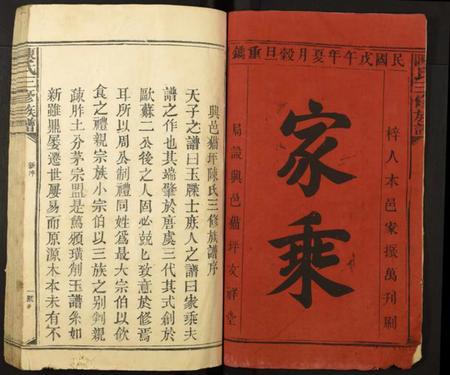 民國戊午年夏月穀旦重鐫
梓人本邑家振萬刊刷
家乘
局設興邑貓坪友祥堂
陳氏三修族譜
興邑貓坪陳氏三修族譜序
天子之譜曰玉牒士庶人之譜曰家乘夫
譜之作也其端肇於唐虞三代其式創於
歐蘇二公後之人罔不兢兢致意於修焉
耳所以周公制禮同姓為最大宗伯以飲
食之禮親宗族小宗伯以三族之別親
疎胙土分茅宗盟是篤頒璜剖玉譜系如
新雖鼎屢遷世屢易而原源木本未有不
陳氏三修族譜
新序
一